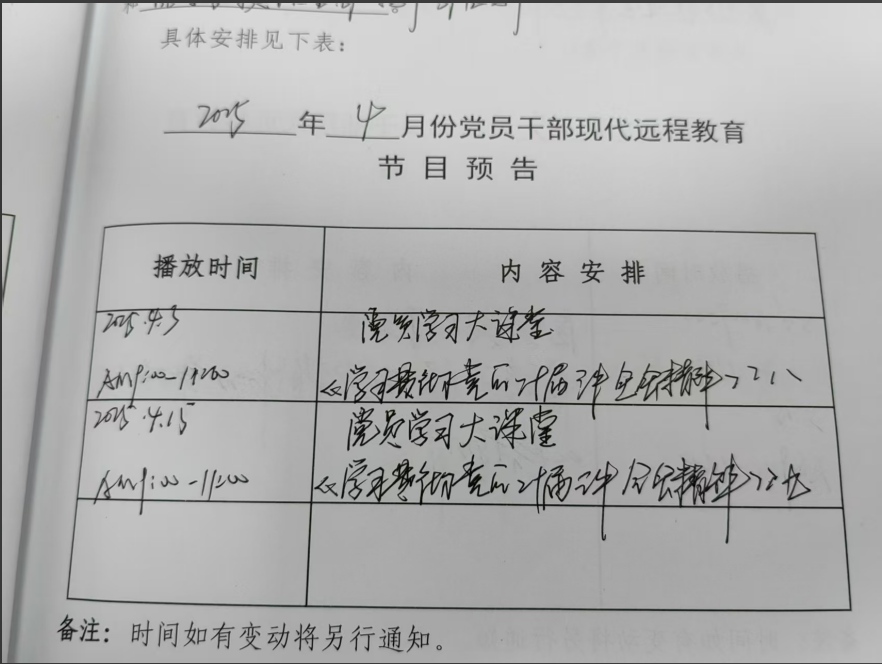 具体安排见下表：
2025年4月份党员干部现代远程教育
节目预告
播放时间 内容安排
2025.4.3 党员学习大课堂
AM9:00-11:00 《学习贯彻党的二十届三中全会精神》之八
2025.4.15 党员学习大课堂
AM9:00-11:00 《学习贯彻党的二十届三中全会精神》之九
备注：时间如有变动将另行通知。